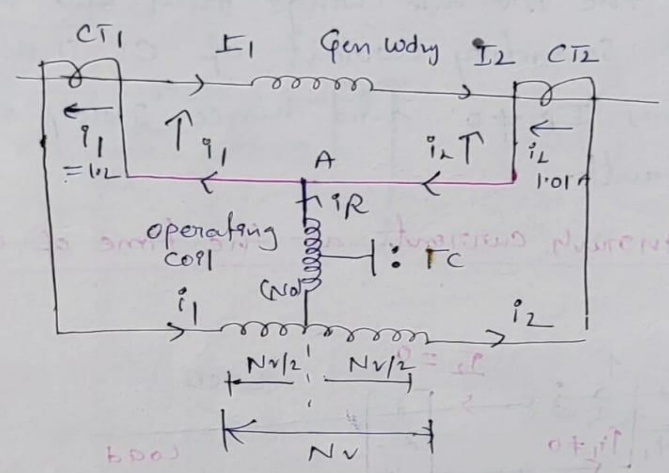 CT1 I1 Gen Wdng I2 CT2
i1
=1.2
i1 A i2 i2
1.01A
iR
operating
coil
TC
(No)
i1 i2
Nr/2 Nr/2
Nr